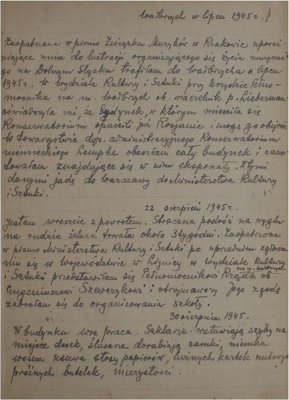 Wałbrzych w lipcu 1945 r.
Zaopatrzona w pismo Związku Muzyków w Krakowie upoważ-
niające mnie do lustracji organizującego się życia muzyczne-
go na Dolnym Śląsku trafiłam do Wałbrzycha w lipcu
1945 r. W Wydziale Kultury i Sztuki przy Urzędzie Pełno-
mocnika na m. Wałbrzych ob. naczelnik p. Lieberman
oświadczył mi, że budynek, w którym mieściło się
Konserwatorium opuścili już Rosjanie i mogę go objąć.
W towarzystwie dyr. administracyjnego Konserwatorium
niemieckiego obeszłam cały budynek i zano-
towałam znajdujące się w nim eksponaty. Z tymi
danymi jadę do Warszawy do Ministerstwa Kultury
i Sztuki.
22 sierpień 1945 r.
Jestem wreszcie z powrotem. Straszna podróż na węglu
na rudzie żelaza trwała około 3 tygodni. Zaopatrzona
w pismo Ministerstwa Kultury i Sztuki po uprzednim zgłosze-
niu się w Województwie w Lignicy w Wydziale Kultury
i Sztuki przedstawiłam się Pełnomocnikowi Rządu ob.
na m. Wałbrzych
Eugeniuszowi Szewczykowi i otrzymawszy Jego zgodę
zabrałam się do organizowania szkoły.
30 sierpnia 1945.
W budynku wre praca. Szklarze wstawiają szyby na
miejsce desek, ślusarze dorabiają zamki, niemka
woźna usuwa stosy papierów, luźnych kartek nutowych
próżnych butelek, nieczystości.